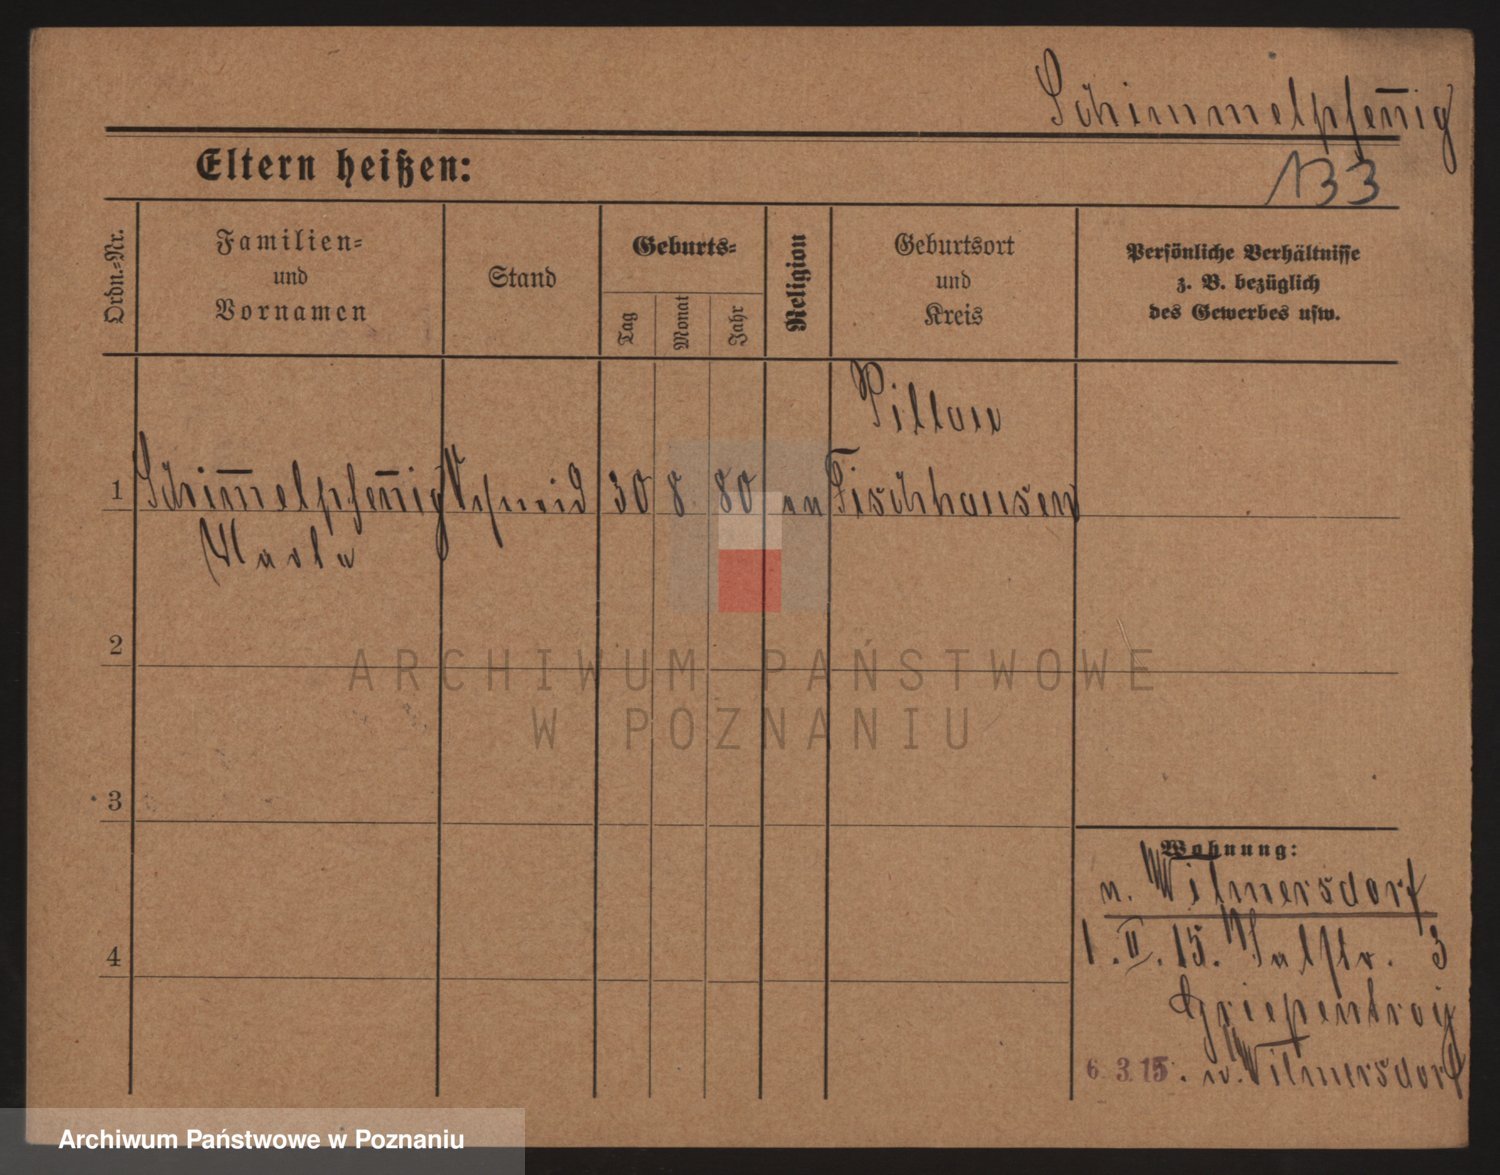 Schimmelpfen̅ig
Eltern heißen:
133
Ordn.-Nr.
Familien-
und
Vornamen
Stand
Geburts-
Tag
Monat
Jahr
Religion
Geburtsort
und
Kreis
Persönliche Verhältnisse
z. B. bezüglich
des Gewerbes usw.
Pillau
1 Schim̅elpfen̅ig 30 8 80 ev Fischhausen
2
ARCHIWUM PAŃSTWOWE
W POZNANIU
3
Wohnung:
n. Wilmersdorf
4
1. II. 15. 3
Griepentrog
6. 3. 15. n. Wilmersdorf
Archiwum Państwowe w Poznaniu